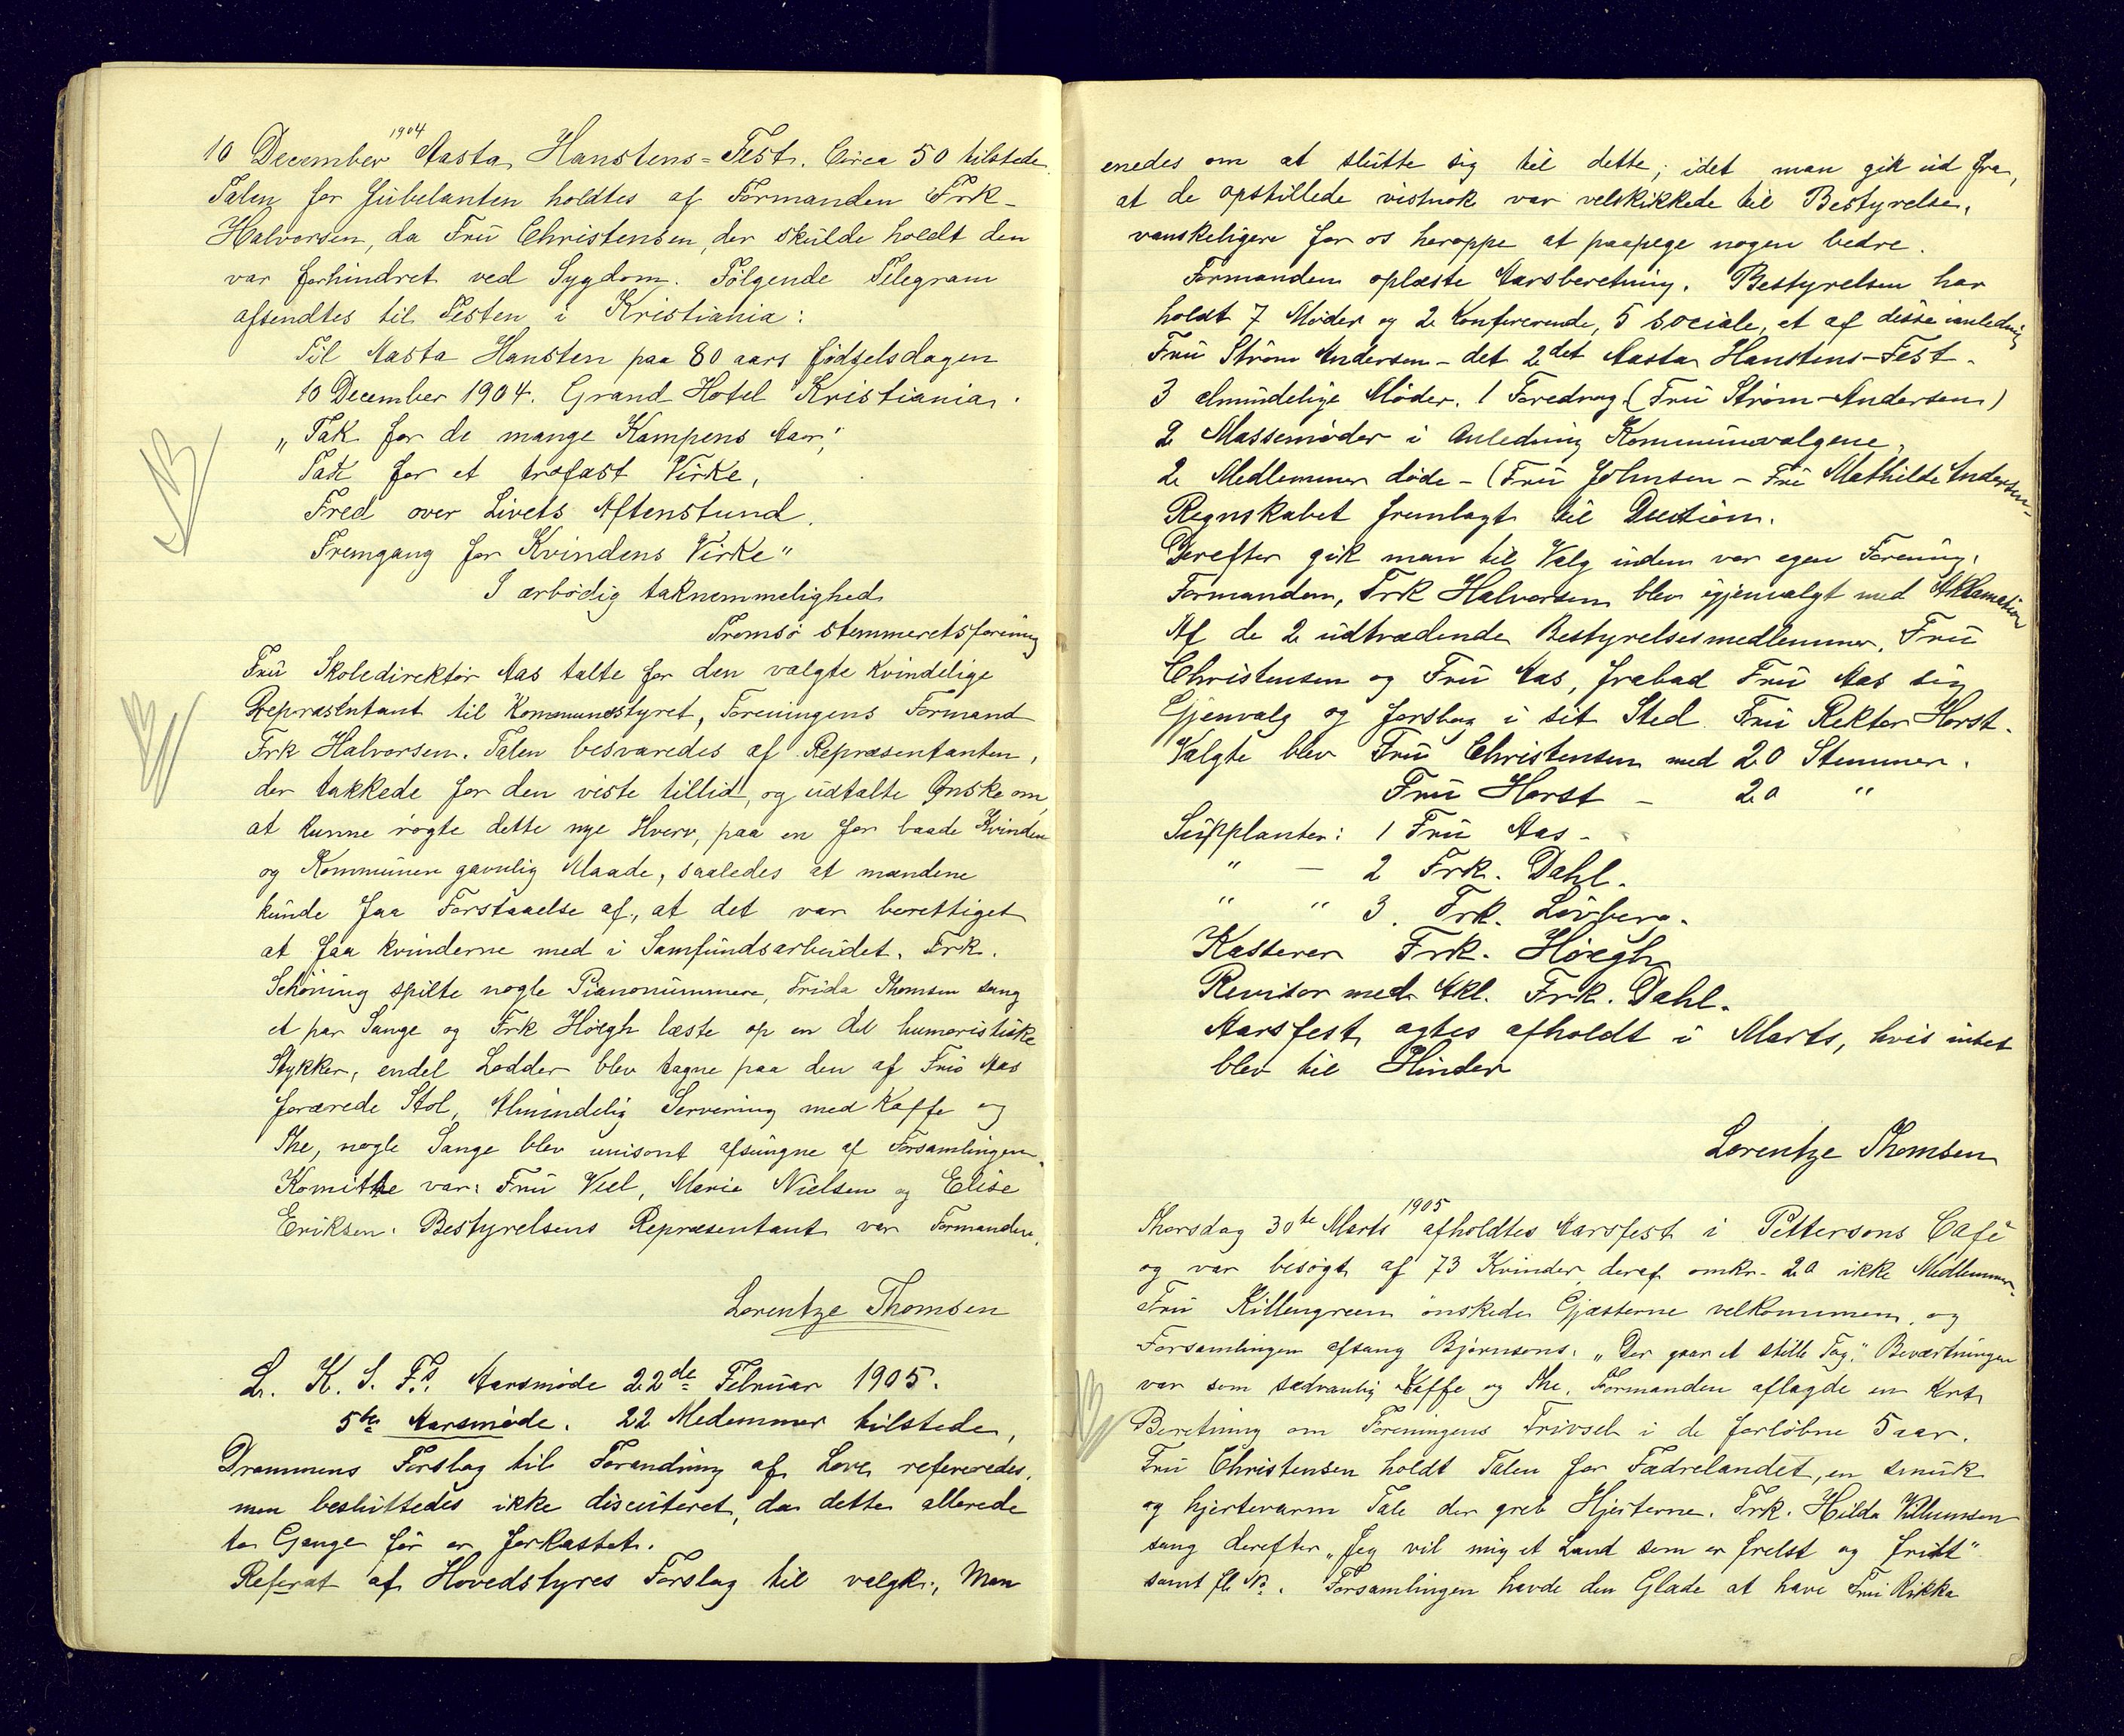 10 December 1904 Aasta Hanstens=Fest. Circa 50 tilstede
Talen for Jubelanten holdtes af Formanden Frk-
Halvorsen, da Fru Christensen, der skulde holdt den
var forhindret ved Sygdom. Følgende Telegram
afsendtes til Festen i Kristiania:
Til Aasta Hansten paa 80 aars fødselsdagen
10 December 1904. Grand Hotel Kristiania.
„Tak for de mange Kampens Aar,
NB
Tak for et trofast Virke,
Fred over Livets Aftenstund.
Fremgang for Kvindens Virke"
I ærbødig taknemmelighed
Tromsø stemmeretsforening
Fru Skoledirektør Aas talte for den valgte kvindelige
NB
Repræsentant til Kommunestyret, Foreningens Formand
Frk Halvorsen. Talen besvaredes af Repræsentanten,
der takkede for den viste tillid, og udtalte Ønske om
at kunne røgte dette nye Hverv, paa en for baade Kvinden
og Kommunen gavnlig Maade, saaledes at mændene
kunde faa Forstaaelse af, at det var berettiget
at faa kvinderne med i Samfundsarbeidet. Frk.
Schøning spilte nogle Pianonummere, Frida Thomsen sang
et par Sange og Frk Høegh læste op en del humoristiske
Stykker, endel Lodder blev tagne paa den af Fru Aas
forærede Stol, Almindelig Servering med Kaffe og
The, nogle Sange blev unisont afsungne af Forsamlingen.
Komitee var: Fru Veel, Marie Nielsen og Elise
Eriksen. Bestyrelsens Repræsentant var Formanden.
Lorentze Thomsen
L. K. S. F.s. Aarsmøde 22de Februar 1905.
5te Aarsmøde. 22 Medemmer tilstede,
Drammens Forslag til Forandring af Love refereredes,
men besluttedes ikke discuteret, da dette allerede
to Gange før er forkastet.
Referat af Hovedstyres Forslag til valgk., Man
enedes om at slutte sig til dette; idet man gik ud fra,
at de opstillede vistnok var velskikkede til Bestyrelse,
vanskeligere for os heroppe at paapege nogen bedre.
Formanden oplæste Aarsberetning. Bestyrelsen har
holdt 7 Møder og 2 Konfererende, 5 sociale, et af disse i anledning
Fru Strøm Andersen - det 2det Aasta Hanstens-Fest.
3 almindelige Møder. 1 Foredrag (Fru Strøm-Andersen)
2 Massemøder i Anledning Kommunevalgene,
2 Medlemmer døde - (Fru Johnsen - Fru Mathilde Andersen-
Regnskabet fremlagt til Decition.
Derefter gik man til Valg inden vor egen Forening.
Formanden, Frk Halvorsen blev igjenvalgt med Aklamation
Af de 2 udtrædende Bestyrelsesmedlemmer, Fru
Christensen og Fru Aas, frabad Fru Aas sig
Gjenvalg og forslog i sit Sted Fru Rektor Horst.
Valgte blev Fru Christensen med 20 Stemmer.
Fru Horst - 20 "
Supplanter: 1 Fru Aas -
" - 2 Frk. Dahl.
" " 3. Frk. Løvberg.
Kasserer Frk. Høegh
Revisor med Akl. Frk. Dahl.
Aarsfest agtes afholdt i Marts, hvis intet
blev til Hinder
Lorentze Thomsen
Thorsdag 30te Marts 1905 afholdtes Aarsfest i Pettersons Café
og var besøgt af 73 Kvinder, deraf omkr. 20 ikke Medlemmer.
Fru Killengreen ønskede Gjæsterne velkommen, og
Forsamlingen afsang Bjørnsons: „Der gaar et stille Tog." Beværtningen
var som sædvanlig Kaffe og The. Formanden aflagde en kort
NB
Beretning om Foreningens Trivsel i de forløbne 5 aar.
Fru Christensen holdt Talen for Fædrelandet, en smuk
og hjertevarm Tale der greb Hjerterne. Frk. Hilda Villumsen
sang derefter „Jeg vil mig et Land som er frelst og fridt"
samt fl No. Forsamlingen havde den Glæde at have Fru Rikka